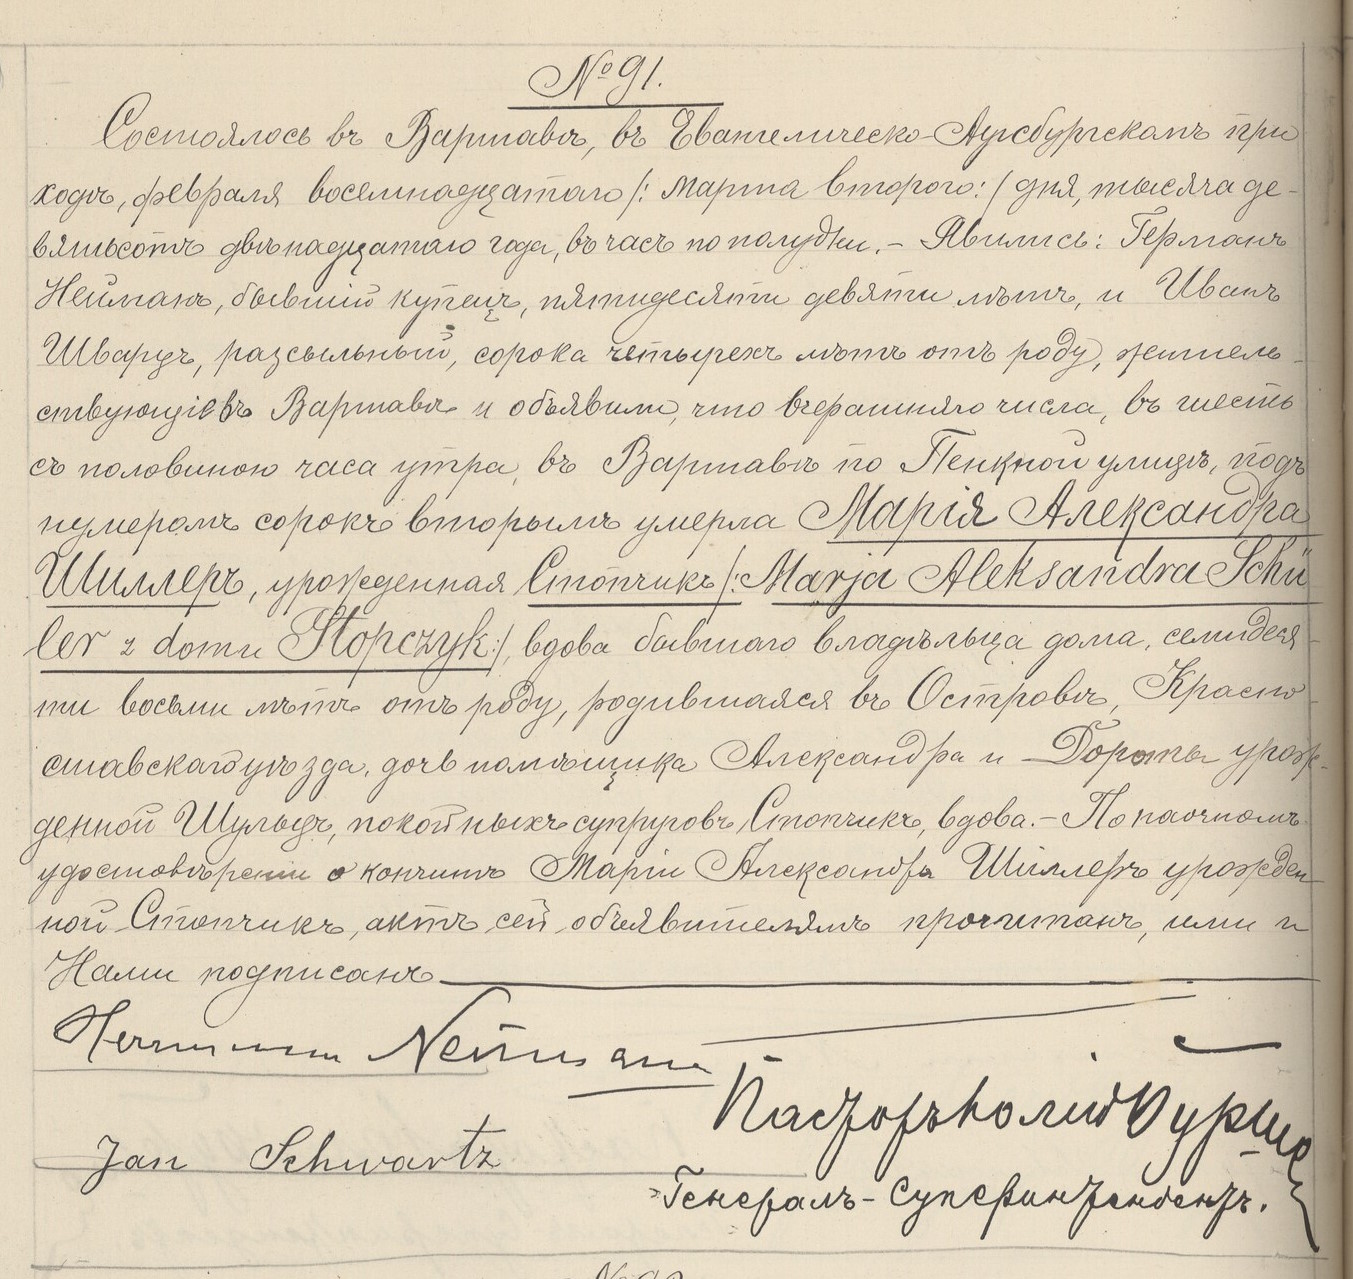 № 91.
Состоялось въ Варшавѣ, въ Евангелическо-Аугсбургскомъ при
ходѣ, февраля восемнадцатаго /: марта втораго :/ дня, тысяча де-
вятьсотъ двѣнадцатаго года, въ часъ по полудни. – Явились: Германъ
Нейманъ, бывшій купецъ, пятидесяти девяти лѣтъ, и Иванъ
Шварцъ, разсыльный, сорока четырехъ лѣтъ отъ роду, житель-
ствующіе въ Варшавѣ и объявили, что вчерашняго числа, въ шесть
съ половиною часа утра, въ Варшавѣ по Пенкной улицѣ, подъ
нумеромъ сорокъ вторымъ умерла Марія Александра
Шиллеръ, урожденная Стопчикъ /: Marja Aleksandra Schü
ler z domu Stopczyk :/, вдова бывшаго владѣльца дома, семидеся-
ти восьми лѣтъ отъ роду, родившаяся въ Островѣ, Красно-
ставскаго уѣзда, дочь помѣщика Александра и Дороты урож-
денной Шульцъ, покойныхъ супруговъ Стопчикъ, вдова. – По наочномъ
удостовѣреніи о кончинѣ Маріи Александры Шиллеръ урожден
ной Стопчикъ, актъ сей объявителямъ прочитанъ, ими и
Нами подписанъ
Herrmann Neumann
Пасторъ Юлій Бурше
Jan Schwartz
Генералъ-Суперинтендентъ.